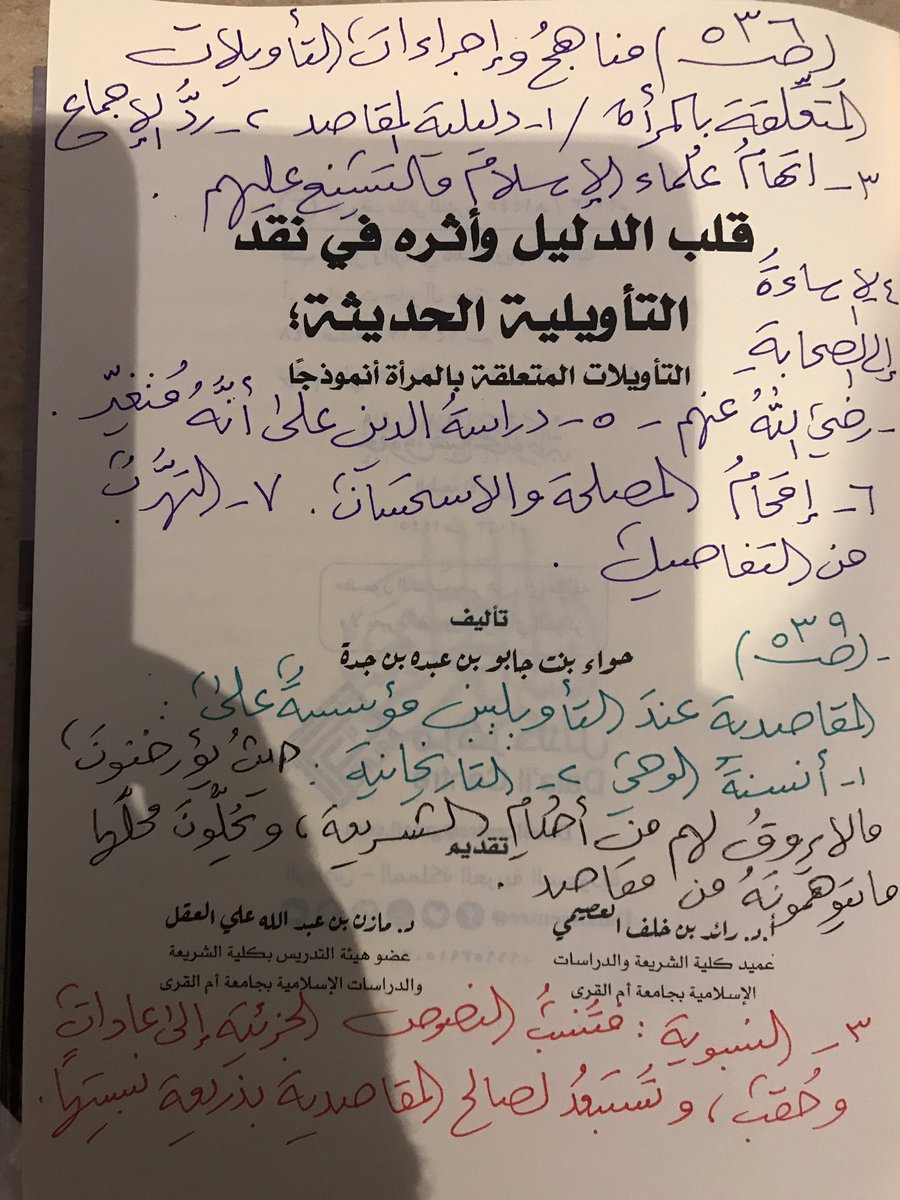 (ص ٥٣٦) مناهجُ وإجراءات التأويلات
المتعلِّقة بالمرأة / ١- دليلية المقاصد ٢- ردُّ الإجماع
٣- اتهامُ علُماء الإسلام والتشنيع عليهم .
قلب الدليل وأثره في نقد
٤- الإساءةُ
التأويلية الحديثة؛
إلى الصحابةِ
التأويلات المتعلقة بالمرأة أنموذجًا
- رضيَ اللهُ عنهم - ٥- دراسةُ الدين على أنَّهُ مُتغيِّر .
٦- إقحامُ المصلحة والاستحسان . ٧- التهرُّب
من التفاصيل .
تأليف
حواء بنت جابو بن عبده بن جدة
- (ص ٥٣٩)
المقاصدية عندَ التأويليين مؤسسةٌ على :
١- أنسنةُ الوحي ٢- التاريخانية : حيثُ يُؤرخنونَ
مالا يروقُ لهم من أحكامِ الشريعة ، ويُحِلُّونَ محلَّها
تقديم
ما يتوهمونَهُ من مقاصد .
أ.د. رائد بن خلف العصيمي
د. مازن بن عبد الله علي العقل
عميد كلية الشريعة والدراسات
عضو هيئة التدريس بكلية الشريعة
الإسلامية بجامعة أم القرى
والدراسات الإسلامية بجامعة أم القرى
٣- النسبوية : فتُنسبُ النصوص الجزئية إلى عادات
وحُقب ، وتُستبعدُ لصالح المقاصدية بذريعة نسبيتها .